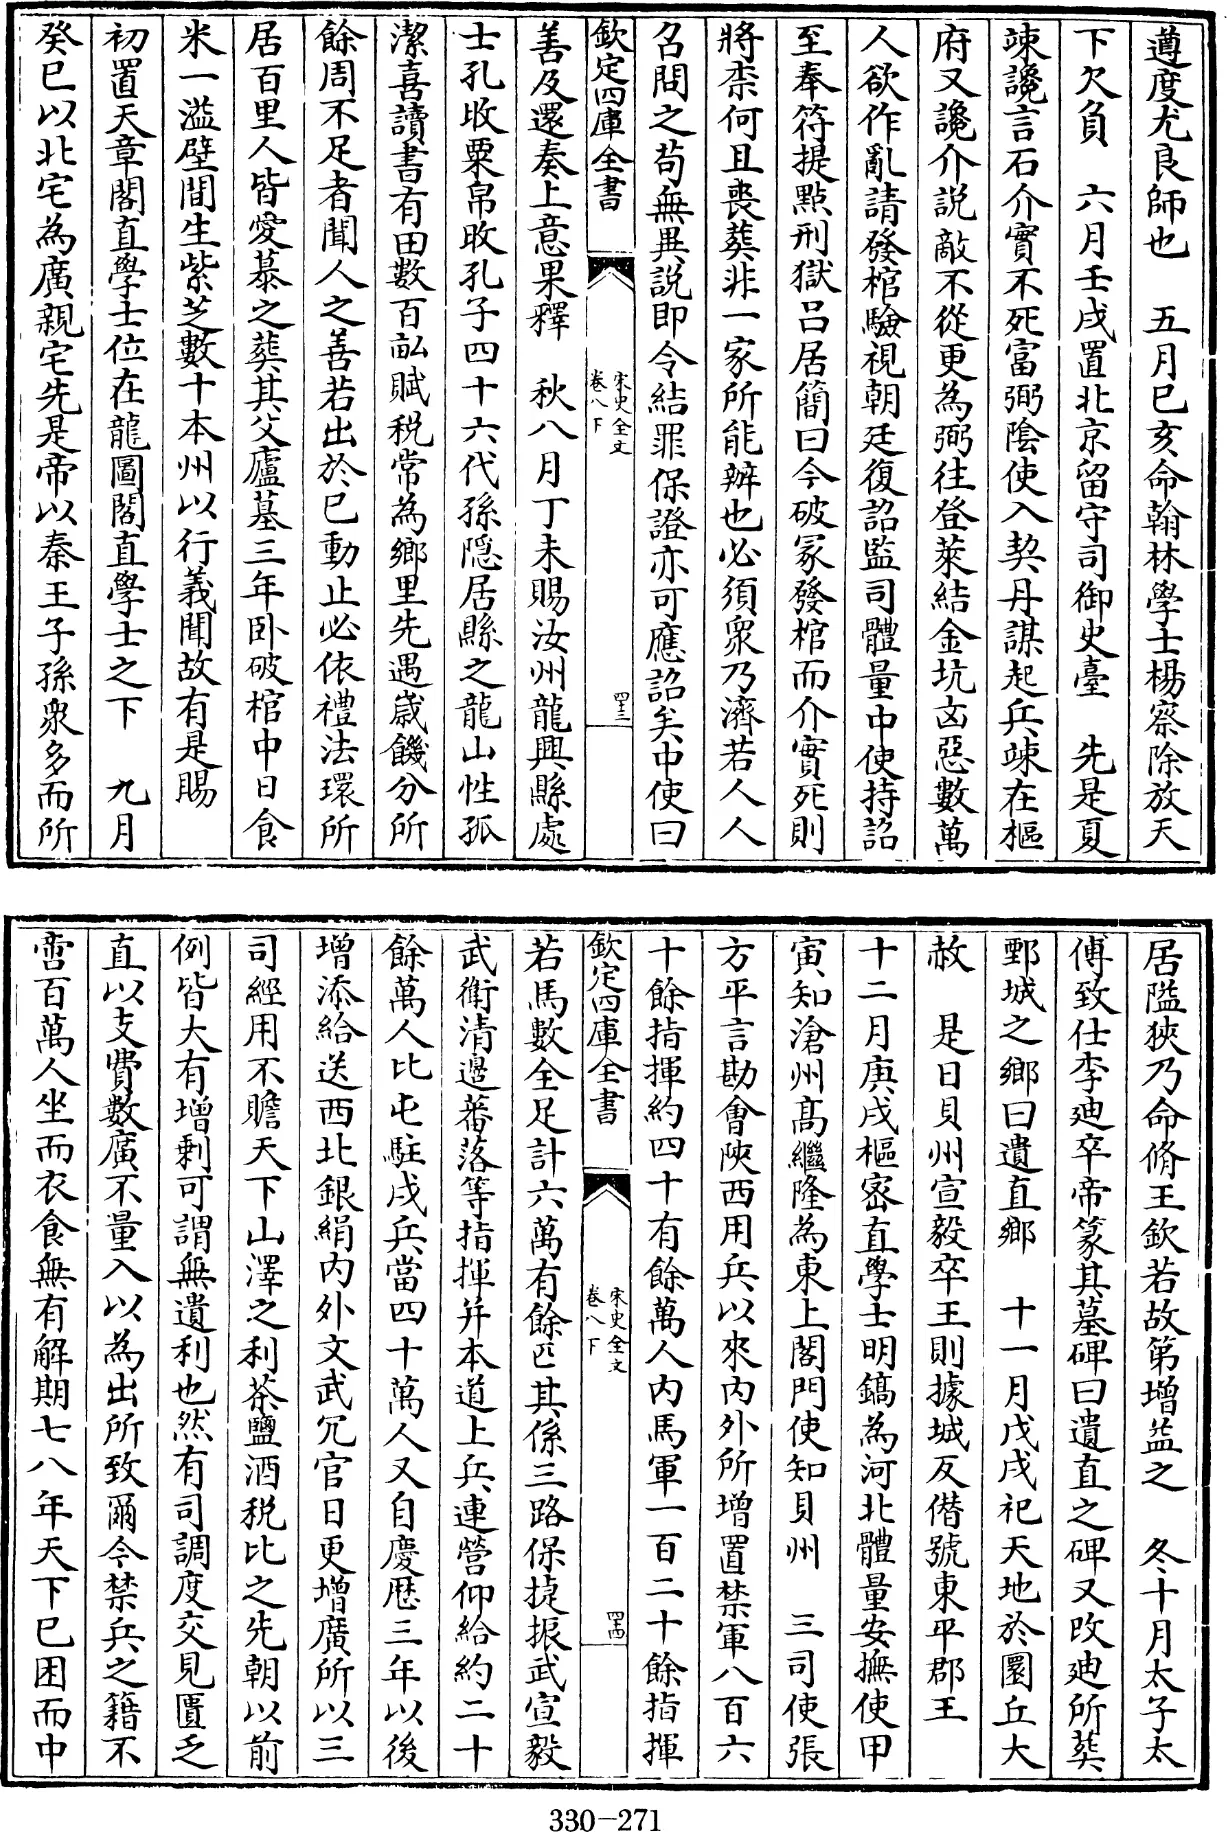 遵度尤良師也　五月己亥命翰林學士楊察除放天
下欠負　六月壬戌置北京留守司御史臺　先是夏
竦讒言石介實不死富弼陰使入契丹謀起兵竦在樞
府又讒介説敵不從更為弼往登萊結金坑凶惡數萬
人欲作亂請發棺驗視朝廷復詔監司體量中使持詔
至奉符提點刑獄吕居簡曰今破冢發棺而介實死則
將柰何且喪葬非一家所能辦也必須衆乃濟若人人
召問之苟無異説即令結罪保證亦可應詔矣中使曰
欽定四庫全書
宋史全文
卷八下
四十三
善及還奏上意果釋　秋八月丁未賜汝州龍興縣處
士孔旼粟帛旼孔子四十六代孫隠居縣之龍山性孤
潔喜讀書有田數百畝賦税常為鄉里先遇歲饑分所
餘周不足者聞人之善若出於已動止必依禮法環所
居百里人皆愛慕之葬其父廬墓三年卧破棺中日食
米一溢壁間生紫芝數十本州以行義聞故有是賜
初置天章閣直學士位在龍圖閣直學士之下　九月
癸巳以北宅為廣親宅先是帝以秦王子孫衆多而所
居隘狹乃命脩王欽若故第增益之　冬十月太子太
傅致仕李迪卒帝篆其墓碑曰遺直之碑又改迪所葬
鄄城之鄉曰遺直鄉　十一月戊戌祀天地於圜丘大
赦　是日貝州宣毅卒王則據城反僭號東平郡王
十二月庚戌樞密直學士明鎬為河北體量安撫使甲
寅知滄州髙繼隆為東上閤門使知貝州　三司使張
方平言勘會陜西用兵以來内外所增置禁軍八百六
十餘指揮約四十有餘萬人内馬軍一百二十餘指揮
欽定四庫全書
宋史全文
卷八下
四十四
若馬數全足計六萬有餘匹其係三路保捷振武宣毅
武衛清邊蕃落等指揮并本道土兵連營仰給約二十
餘萬人比屯駐戍兵當四十萬人又自慶厯三年以後
增添給送西北銀絹内外文武冗官日更增廣所以三
司經用不贍天下山澤之利茶鹽酒税比之先朝以前
例皆大有增剩可謂無遺利也然有司調度交見匱乏
直以支費數廣不量入以為出所致爾今禁兵之籍不
啻百萬人坐而衣食無有解期七八年天下已困而中
330-271